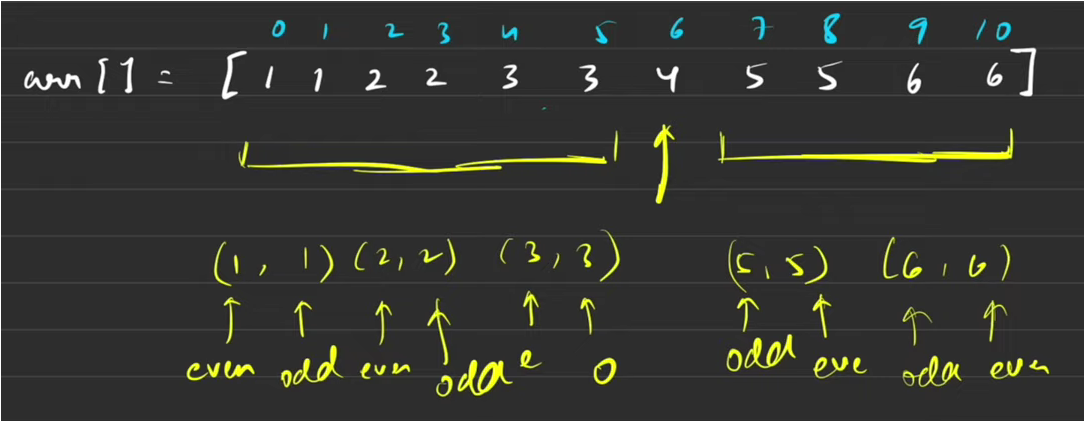 0 1 2 3 4 5 6 7 8 9 10
arr [ ] = [ 1 1 2 2 3 3 4 5 5 6 6 ]
(1, 1) (2, 2) (3, 3) (5, 5) (6, 6)
even odd even odd e o odd eve odd even